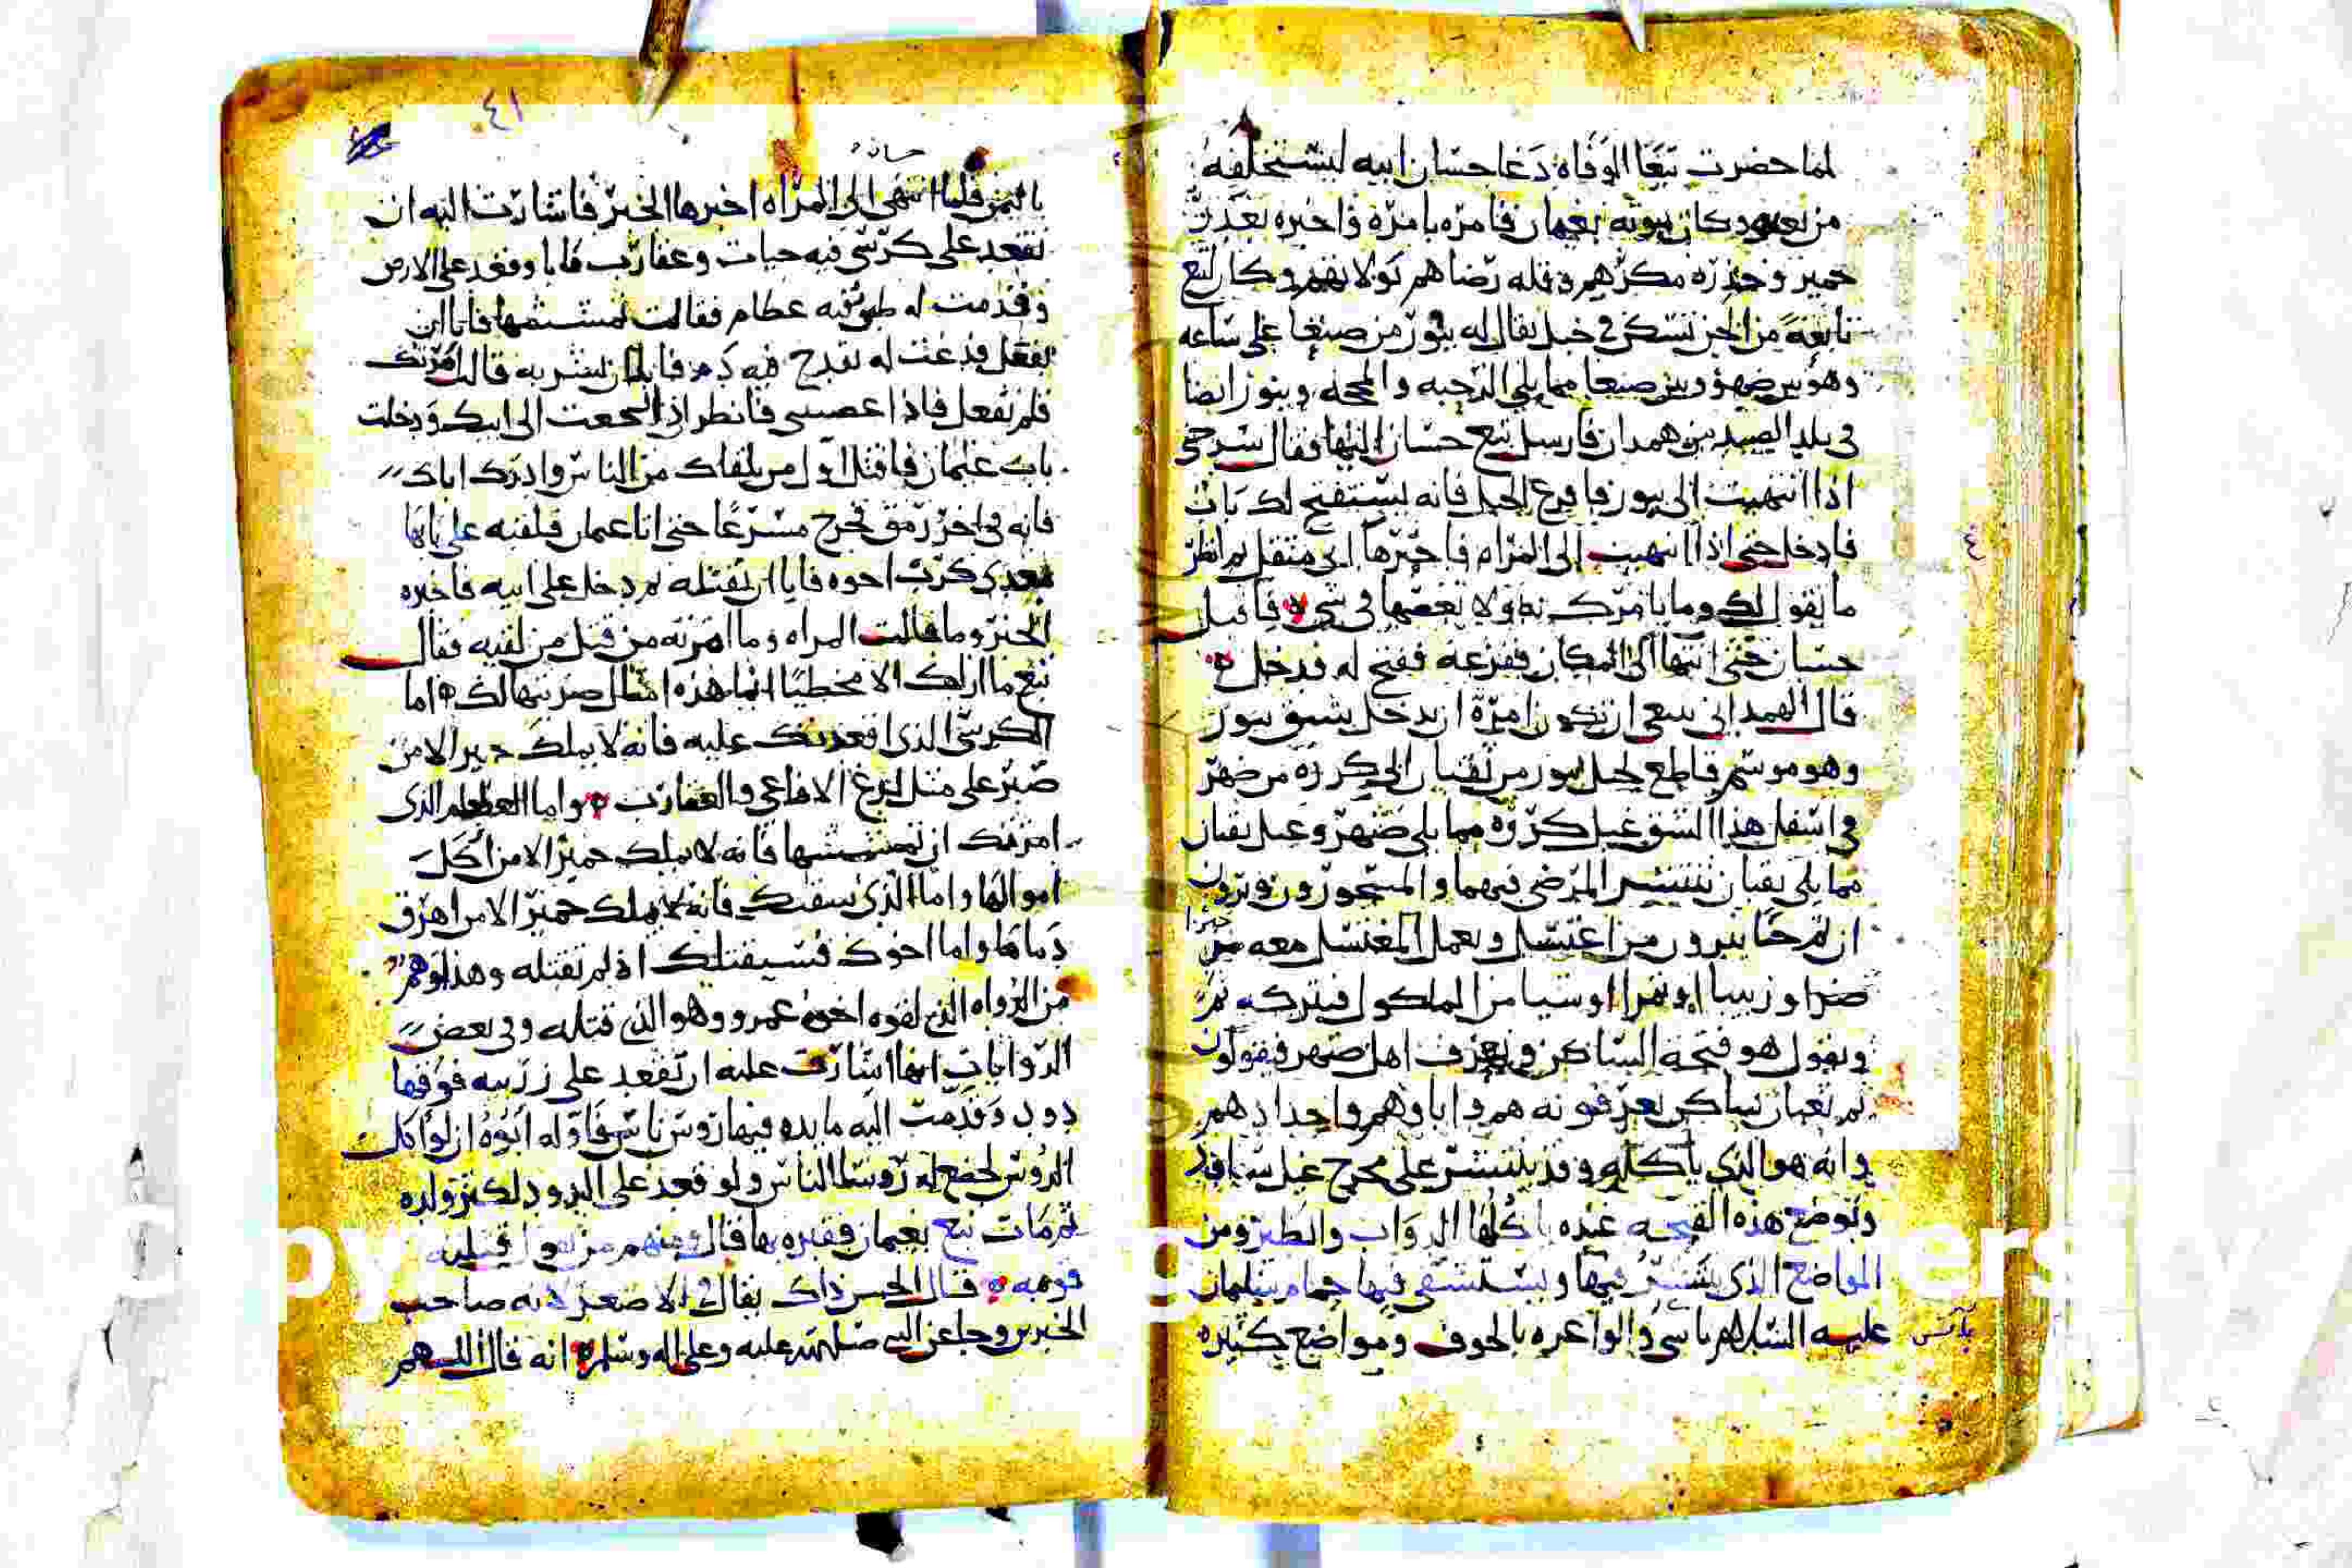 لما حضرت تبعا الوفاه دعا حسان ابيه ليستخلفه
من بعده وكان موته بغيمان فامره بامره واخبره بغدر
حمير وحذره مكرهم وقله رضاهم بولاتهم وكان لتبع
تابعة من الجن تسكن في جبل يقال له ينور من صنعا على ساعه
وهو بين ضهر وبين صنعا مما يلي الرحبه و وينور ايضا
في بلد الصيد من همدان فارسل تبع حسان اليها فقال سر حتى
اذا انتهيت الى ينور فاقرع الجبل فانه يستفتح لك باب
فادخل حتى اذا انتهيت الى المراه فاخبرها اني مثقل ثم انظر
ما تقول لك وما تامرك به ولا تعصها في شي فاقبل
حسان حتى انتها الى المكان فقرعه ففتح له فدخل
قال الهمداني ينبغي ان تكون امرة ان يدخل بشق ينور
وهو موسم قاطع لجبل ينور من نقبان الى من ضهر
في اسفل هذا الشق غيل مما يلي ضهر وغيل نقبان
مما يلي نقبان تنتشر المرضى فيهما والمسحورون ويرون
ان ثم جنا يبرون من اغتسل ويعمل المغتسل معه خبزا
او زبيبا او تمرا او شيا من الماكول فيتركه ثم
ويقول هو فتحة الساكن ويعرف اهل ضهر فيقولون
ثم ثعبان ساكن يعرفونه هم واباوهم واجدادهم
وانه هو الذي ياكله وقد ينتشر على مخرج غيل
وتوضع هذه الفتحه عنده ياكلها الدواب والطير ومن
المواضع الذي ينتشر فيها ويستشفى فيها حمام سليمان
عليه السلام والواعره بالجوف ومواضع كثيره
٤١
حسان
باليمن فلما انتهى الى المراه اخبرها الخبر فاشارت اليه ان
تقعد على كرسي فيه حيات وعقارب فابا وقعد على الارض
وقدمت له طبق فيه عظام فقالت تمشمشها فابا ان
يفعل فدعت له بقدح فيه دم فابا ان يشربه قالت امرتك
فلم تفعل فاذا عصيتني فانظر اذا رجعت الى ابيك ودخلت
باب غيمان فاقتل اول من يلقاك من الناس وادرك اباك
فانه في اخر رمق فخرج مسرعا حتى اتا غيمان فلقيه على بابها
معدي كرب اخوه فابا ان يقتله ثم دخل على ابيه فاخبره
الخبر وما قالت المراه وما امرته من قتل من لقيه فقال
تبع ما اراك الا مخطيا انما هذه امثال ضربتها لك اما
الكرسي الذي اقعدتك عليه فانه لا يملك حمير الا من
صبر على مثل لدغ الافاعي والعقارب واما العظام الذي
امرتك ان تمشمشها فانه لا يملك حمير الا من اكل
اموالها واما الذي سقتك فانه لا يملك حمير الا من اهرق
دماها واما اخوك فسيقتلك اذ لم تقتله وهذا وهم
من الرواه الذي لقوه اخوه عمرو وهو الذي قتله وفي بعض
الروايات انها اشارت عليه ان تقعد على زربيه فوقها
دود وقدمت اليه مايده فيها روس ناس فاوله ابوه ان لو اكلت
الروس لخضع له روسا الناس ولو قعد على الدود لكثر ولده
ثم مات تبع بغيمان فقبره بها قال ومنهم من يقول قتله
قومه قال الحسن ذاك يقال في الاصغر لانه صاحب
الخبرين وجا عن النبي صلى الله عليه وعلى اله وسلم انه قال اللهم